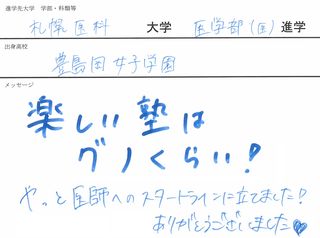 進学先大学　学部・科類等
札幌医科 大学 医学部(医) 進学
出身高校
豊島岡女子学園
メッセージ
楽しい塾は
グノくらい!
やっと医師へのスタートラインに立てました!
ありがとうございました♥